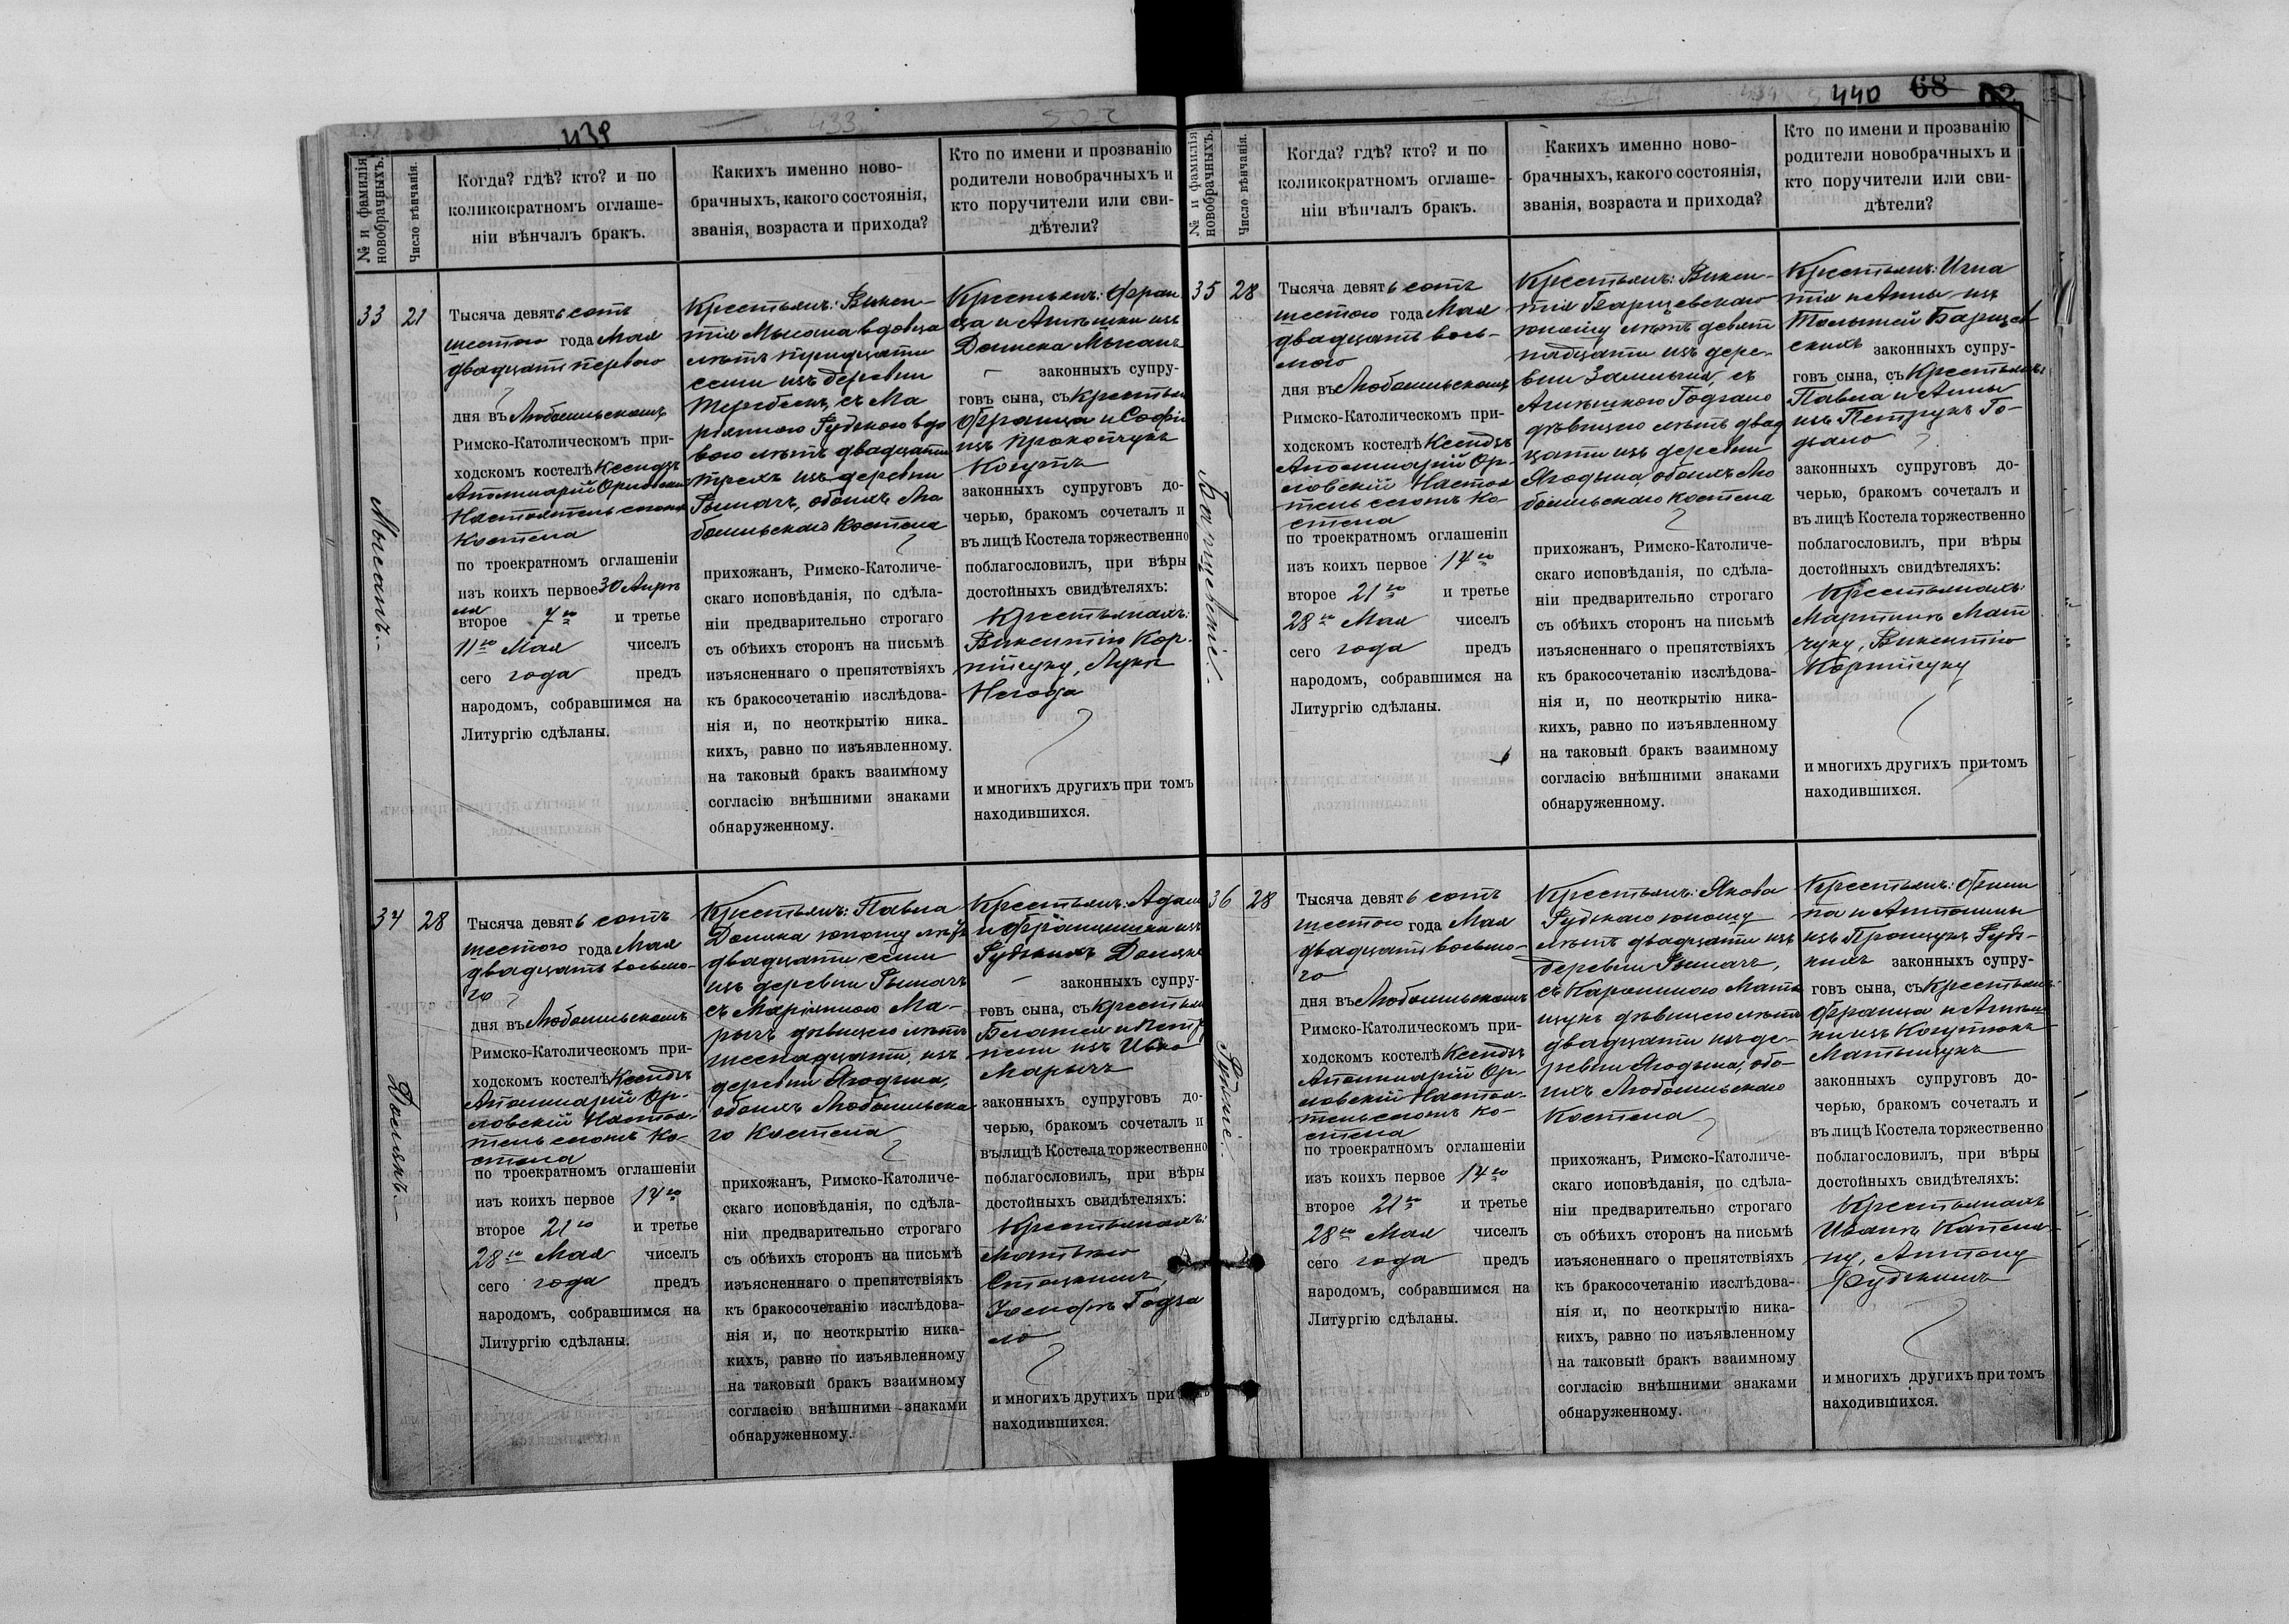 439
№ и фамилія
новобрачныхъ.
Число вѣнчанія.
Когда? гдѣ? кто? и по
коликократномъ оглаше-
ніи вѣнчалъ бракъ.
Какихъ именно ново-
брачныхъ, какого состоянія,
званія, возраста и прихода?
Кто по имени и прозванію
родители новобрачныхъ и
кто поручители или сви-
дѣтели?
33
21
Мысанъ.
Тысяча девять сотъ
шестого года Мая
двадцать перваго
дня въ Любомльскомъ
Римско-Католическомъ при-
ходскомъ костелѣ Ксендзъ
Аполинарій Орловскій
Настоятель сегожъ
Костела
по троекратномъ оглашеніи
изъ коихъ первое 30 Апрѣ
ля
второе 7го и третье
11го Мая чиселъ
сего года предъ
народомъ, собравшимся на
Литургію сдѣланы.
Крестьянъ: Викен-
тія Мысана вдовца
лѣтъ тридцати
семи изъ деревни
съ Ма
ріянною Рудзкою вдо
вою лѣтъ двадцати
трехъ изъ деревни
Рымачъ, обоихъ Лю
бомльскаго Костела
прихожанъ, Римско-Католиче-
скаго исповѣданія, по сдѣла-
ніи предварительно строгаго
съ обѣихъ сторонъ на письмѣ
изъясненнаго о препятствіяхъ
къ бракосочетанію изслѣдова-
нія и, по неоткрытію ника-
кихъ, равно по изъявленному
на таковый бракъ взаимному
согласію внѣшними знаками
обнаруженному.
Крестьянъ: Фран
ца и Агнѣшки изъ
Мысанъ
законныхъ супру-
говъ сына, съ Крестьян
Франца и Софіи
изъ Прокопчукъ
Когутъ
законныхъ супруговъ до-
черью, бракомъ сочеталъ и
въ лицѣ Костела торжественно
поблагословилъ, при вѣры
достойныхъ свидѣтеляхъ:
Крестьянахъ:
Викентію Кор-
пійчуку, Лукѣ
Негода
и многихъ другихъ при томъ
находившихся.
34
28
Долякъ.
Тысяча девять сотъ
шестого года Мая
двадцать восьмо-
го
дня въ Любомльскомъ
Римско-Католическомъ при-
ходскомъ костелѣ Ксендзъ
Аполинарій Ор-
ловскій Настоя-
тель сегожъ Ко-
стела
по троекратномъ оглашеніи
изъ коихъ первое 14го
второе 21го и третье
28го Мая чиселъ
сего года предъ
народомъ, собравшимся на
Литургію сдѣланы.
Крестьянъ: Павла
Доляка юношу лѣтъ
двадцати семи
изъ деревни Рымачъ
съ Маріянною Ма-
рычъ дѣвицею лѣтъ
шеснадцати изъ
деревни Ягодына,
обоихъ Любомльска
го Костела
прихожанъ, Римско-Католиче-
скаго исповѣданія, по сдѣла-
ніи предварительно строгаго
съ обѣихъ сторонъ на письмѣ
изъясненнаго о препятствіяхъ
къ бракосочетанію изслѣдова-
нія и, по неоткрытію ника-
кихъ, равно по изъявленному
на таковый бракъ взаимному
согласію внѣшними знаками
обнаруженному.
Крестьянъ: Адама
и Францишки изъ
Рудзкихъ Долякъ
законныхъ супру-
говъ сына, съ Крестьян
изъ
Марычъ
законныхъ супруговъ до-
черью, бракомъ сочеталъ и
въ лицѣ Костела торжественно
поблагословилъ, при вѣры
достойныхъ свидѣтеляхъ:
Крестьянахъ:
Іосифѣ Годзѧ
ло
и многихъ другихъ при
находившихся.
440 68 62
№ и фамилія
новобрачныхъ.
Число вѣнчанія.
Когда? гдѣ? кто? и по
коликократномъ оглаше-
ніи вѣнчалъ бракъ.
Какихъ именно ново-
брачныхъ, какого состоянія,
званія, возраста и прихода?
Кто по имени и прозванію
родители новобрачныхъ и
кто поручители или сви-
дѣтели?
35
28
Барщевскій.
Тысяча девять сотъ
шестого года Мая
двадцать вось-
мого
дня въ Любомльскомъ
Римско-Католическомъ при-
ходскомъ костелѣ Ксендзъ
Аполинарій Ор-
ловскій Настоя
тель сегожъ Ко-
стела
по троекратномъ оглашеніи
изъ коихъ первое 14го
второе 21го и третье
28го Мая чиселъ
сего года предъ
народомъ, собравшимся на
Литургію сдѣланы.
Крестьянъ: Викен-
тія Барщевскаго
юношу лѣтъ девят
надцати изъ дере-
вни съ
Агнѣшкою Годзяло
дѣвицею лѣтъ двад
цати изъ деревни
Ягодына обоихъ Лю
бомльскаго Костела
прихожанъ, Римско-Католиче-
скаго исповѣданія, по сдѣла-
ніи предварительно строгаго
съ обѣихъ сторонъ на письмѣ
изъясненнаго о препятствіяхъ
къ бракосочетанію изслѣдова-
нія и, по неоткрытію ника-
кихъ, равно по изъявленному
на таковый бракъ взаимному
согласію внѣшними знаками
обнаруженному.
Крестьянъ: Игна
тія и Анны изъ
Барщев
скихъ законныхъ супру-
говъ сына, съ Крестьянъ:
Павла и Анны
изъ Петрукъ Го-
дзяло
законныхъ супруговъ до-
черью, бракомъ сочеталъ и
въ лицѣ Костела торжественно
поблагословилъ, при вѣры
достойныхъ свидѣтеляхъ:
Крестьянахъ:
Мартинѣ Мат
чуку, Викентію
Корпійчуку
и многихъ другихъ при томъ
находившихся.
36
28
Рудзкіе.
Тысяча девять сотъ
шестого года Мая
двадцать восьмо-
го
дня въ Любомльскомъ
Римско-Католическомъ при-
ходскомъ костелѣ Ксендзъ
Аполинарій Ор-
ловскій Настоя-
тель сегожъ Ко-
стела
по троекратномъ оглашеніи
изъ коихъ первое 14го
второе 21го и третье
28го Мая чиселъ
сего года предъ
народомъ, собравшимся на
Литургію сдѣланы.
Крестьянъ: Якова
Рудзкаго юношу
лѣтъ двадцати изъ
деревни Рымачъ,
съ Каролиною Маты
щукъ дѣвицею лѣтъ
двадцати изъ де-
ревни Ягодына, обо-
ихъ Любомльскаго
Костела
прихожанъ, Римско-Католиче-
скаго исповѣданія, по сдѣла-
ніи предварительно строгаго
съ обѣихъ сторонъ на письмѣ
изъясненнаго о препятствіяхъ
къ бракосочетанію изслѣдова-
нія и, по неоткрытію ника-
кихъ, равно по изъявленному
на таковый бракъ взаимному
согласію внѣшними знаками
обнаруженному.
Крестьянъ: Фили
па и Антонины
изъ Рудз-
кихъ законныхъ супру-
говъ сына, съ Крестьянъ:
Франца и Агнѣш
ки изъ
Матыщукъ
законныхъ супруговъ до-
черью, бракомъ сочеталъ и
въ лицѣ Костела торжественно
поблагословилъ, при вѣры
достойныхъ свидѣтеляхъ:
Крестьянахъ
Иванѣ
Антону
Рудзкимъ
и многихъ другихъ при томъ
находившихся.